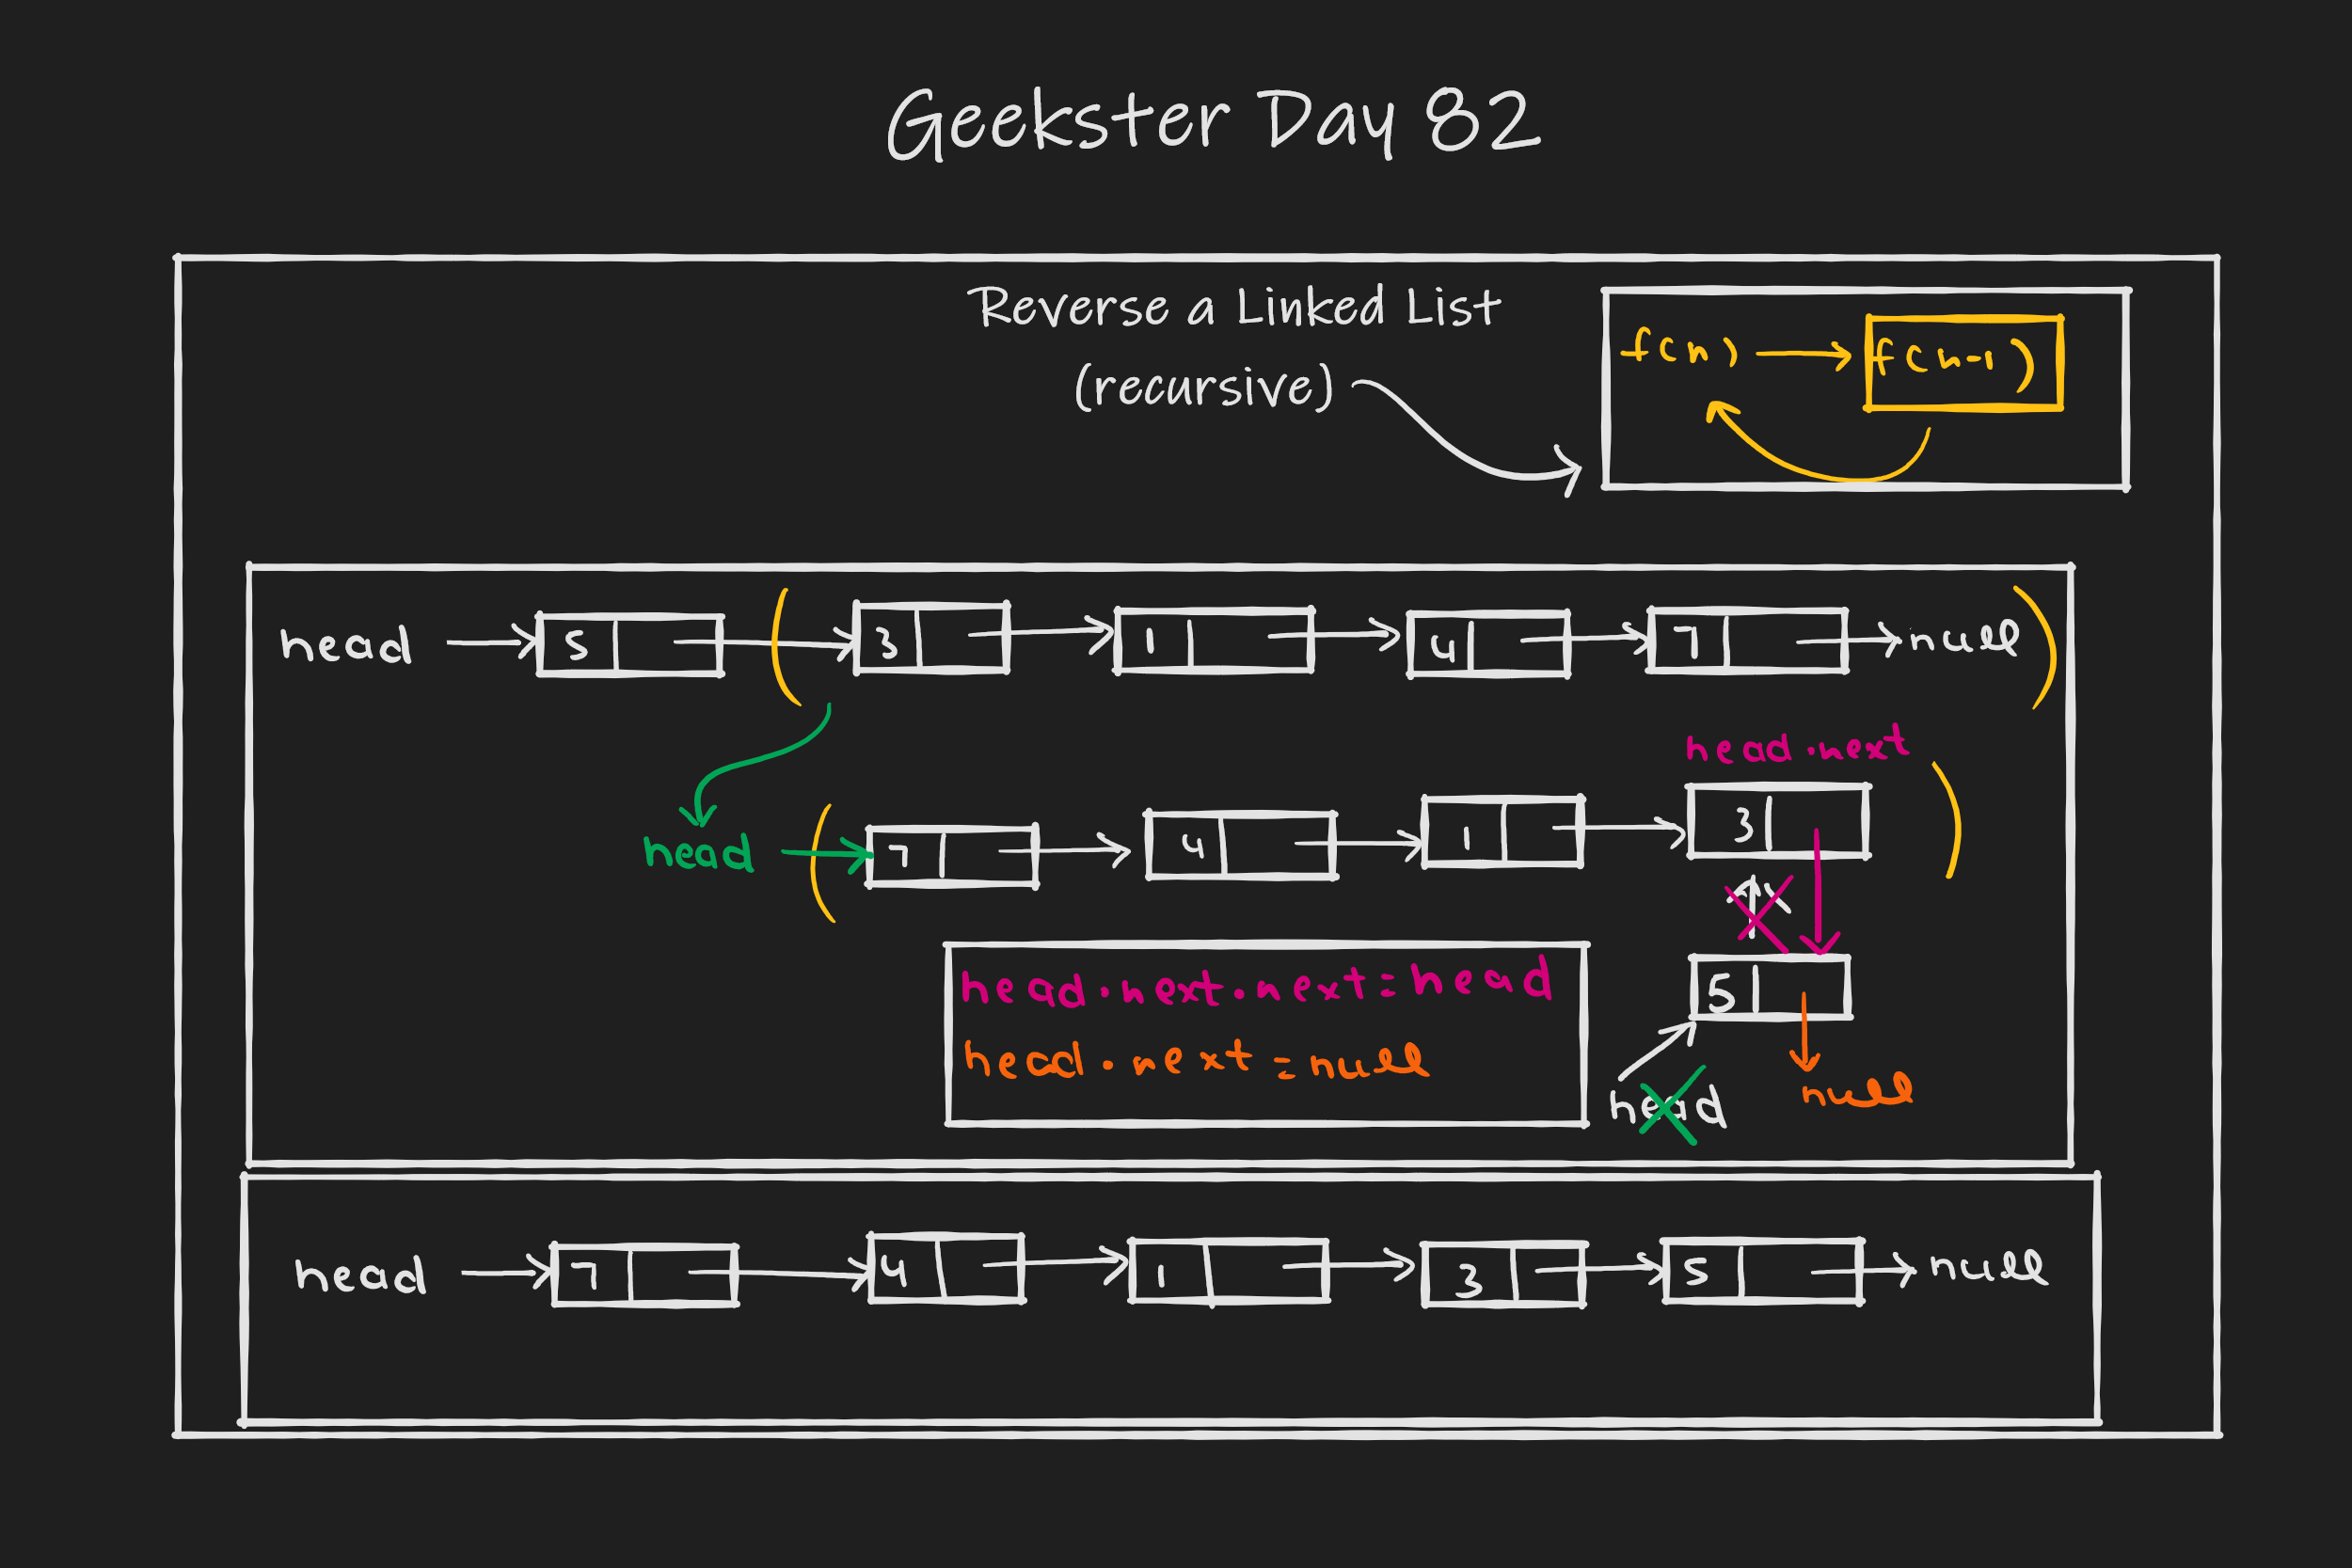 Geekster Day 82
Reverse a Linked List
(recursive)
f(n) f(n-1)
head 5 3 1 4 7 null
head.next
head 7 4 1 3
head.next.next=head
5
head.next=null
head null
head 7 4 1 3 5 null